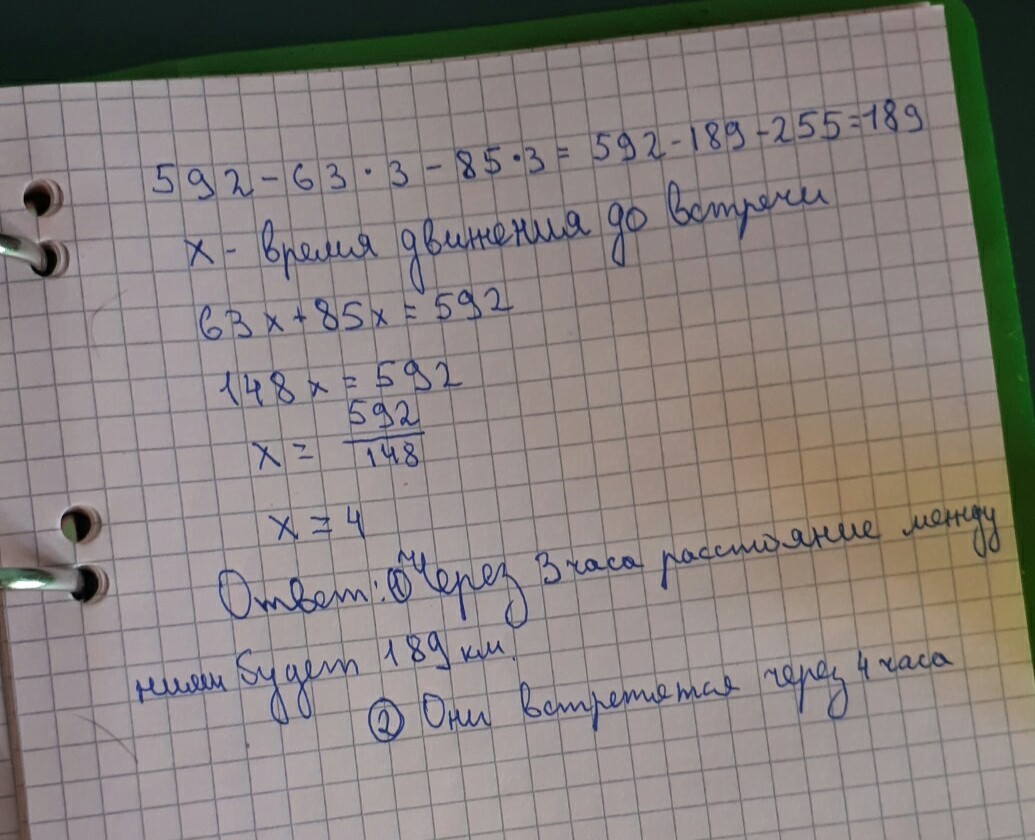 592 - 63 · 3 - 85 · 3 = 592 - 189 - 255 = 189
x - время движения до встречи
63x + 85x = 592
148x = 592
x = 592/148
x = 4
Ответ: ① Через 3 часа расстояние между
ними будет 189 км.
② Они встретятся через 4 часа